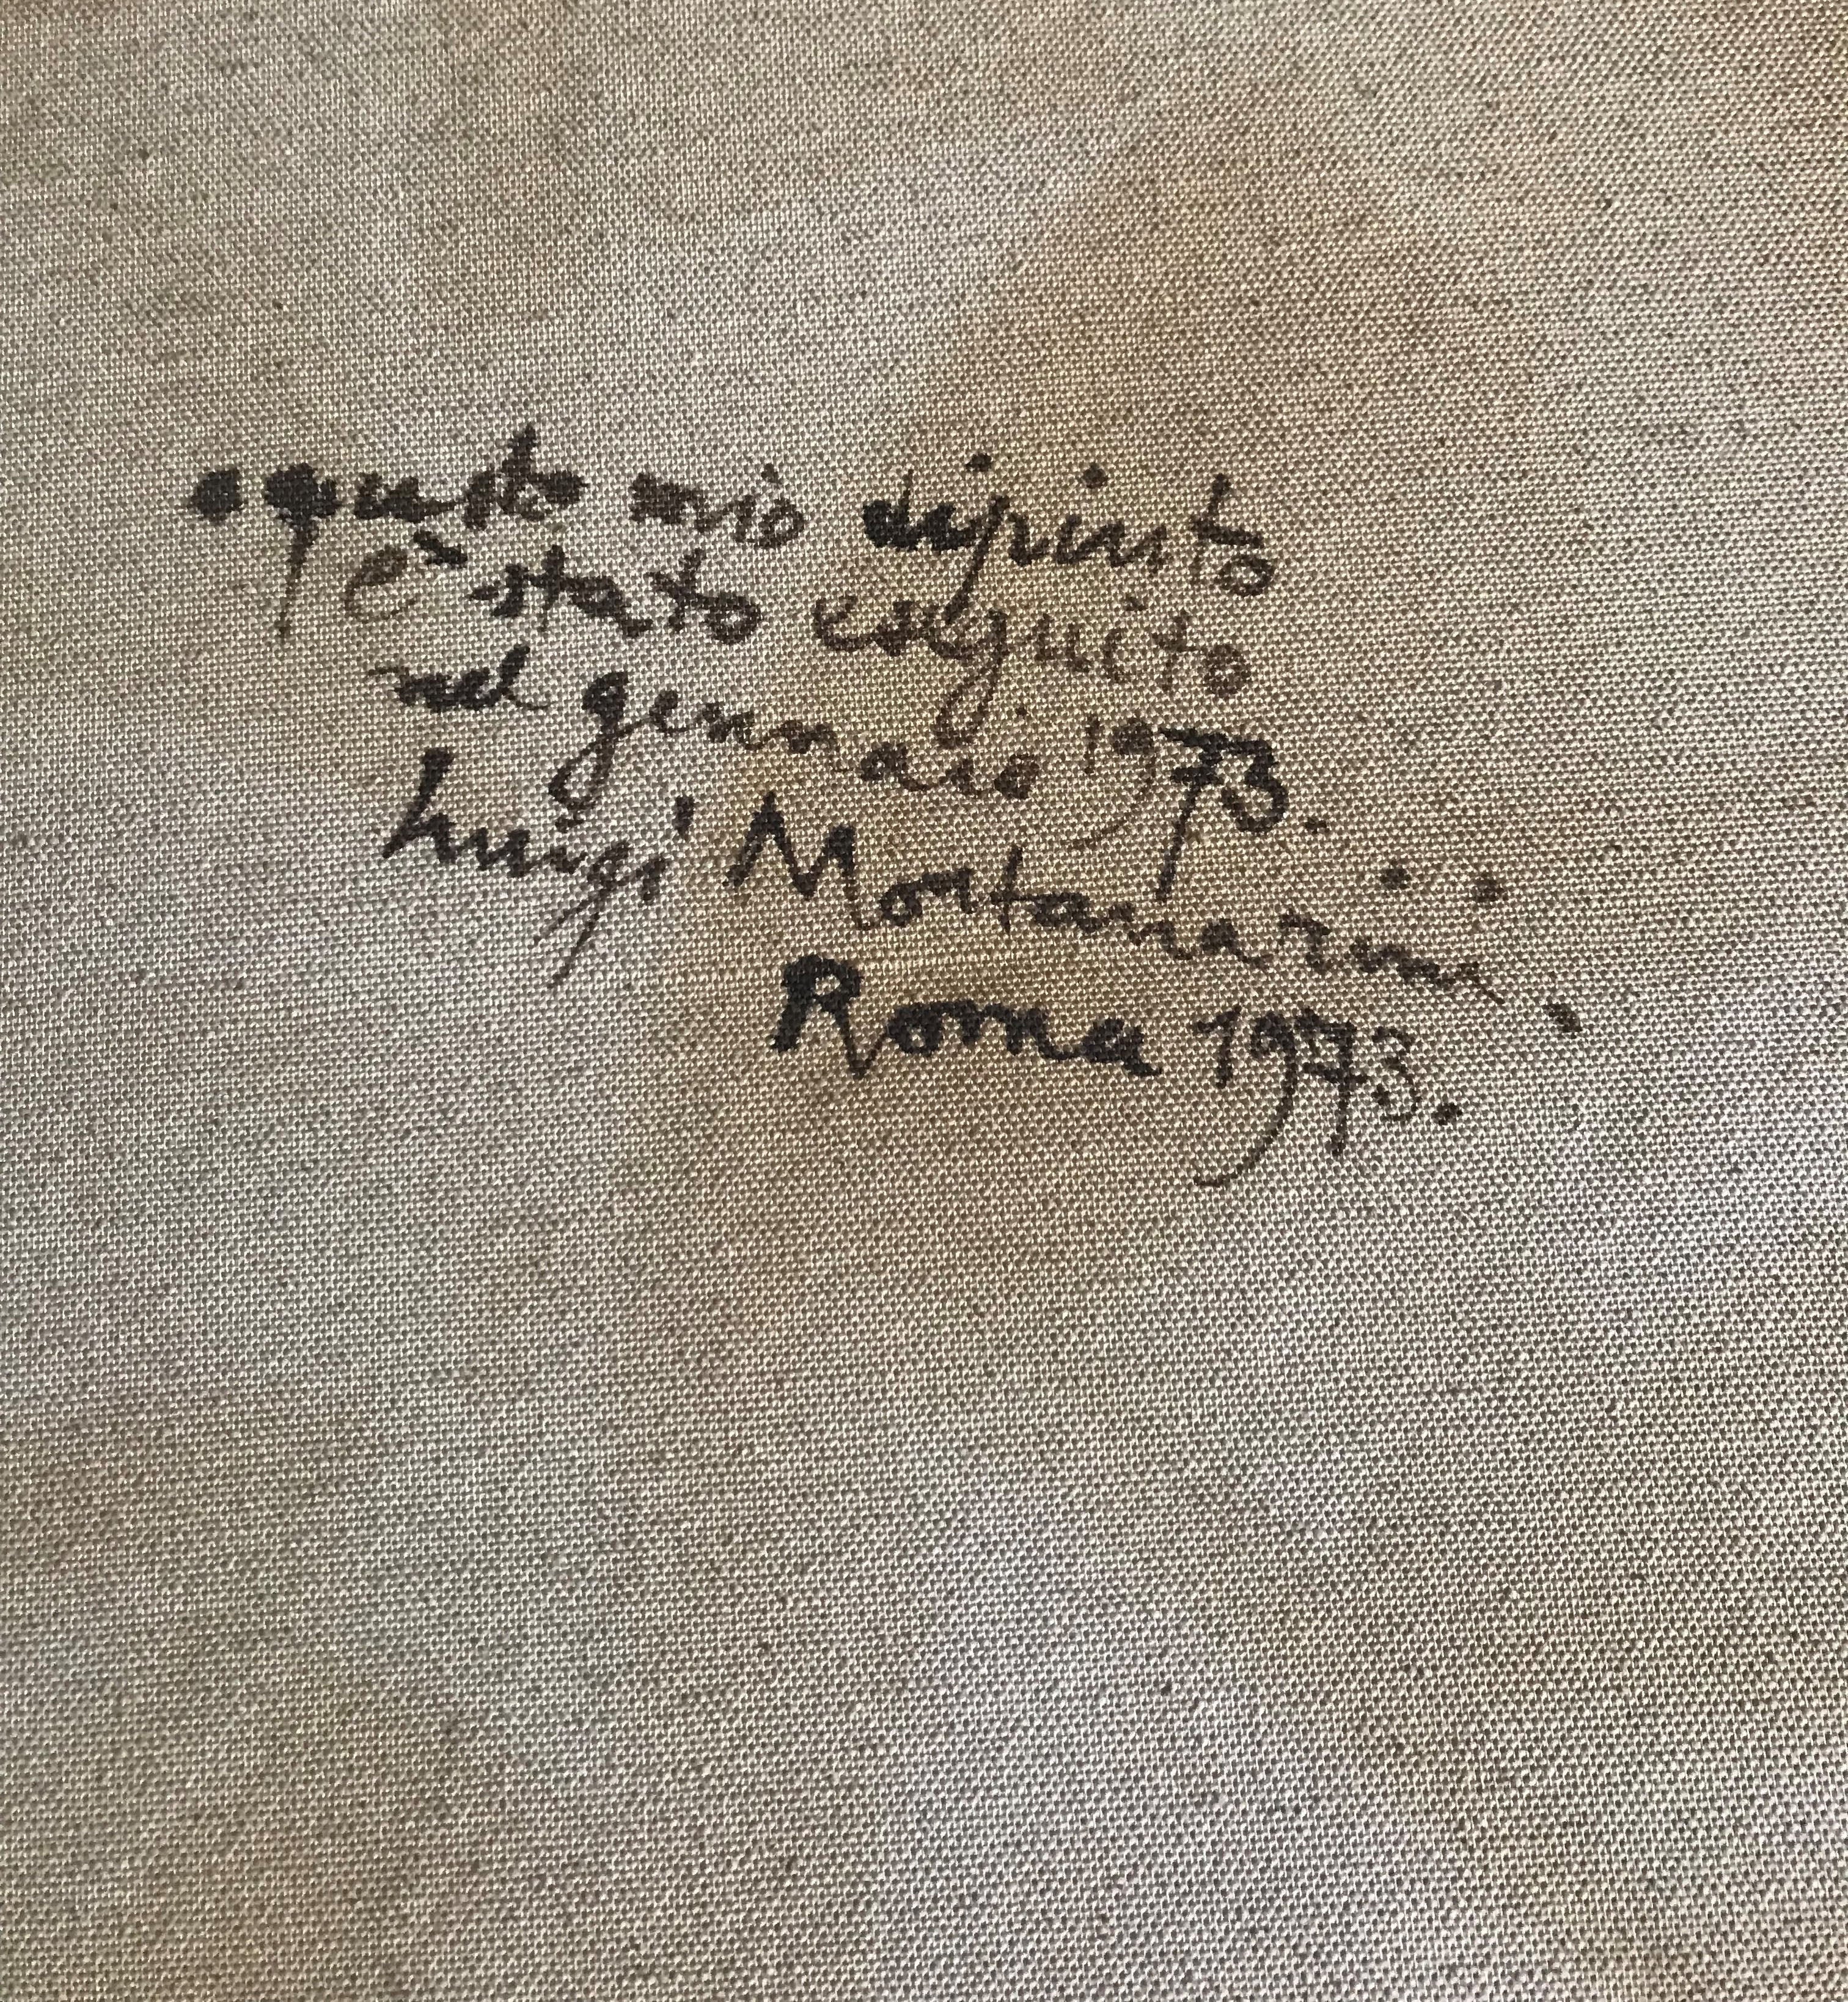 questo mio dipinto
è stato eseguito
nel gennaio 1973.
Luigi Montanarini.
Roma 1973.